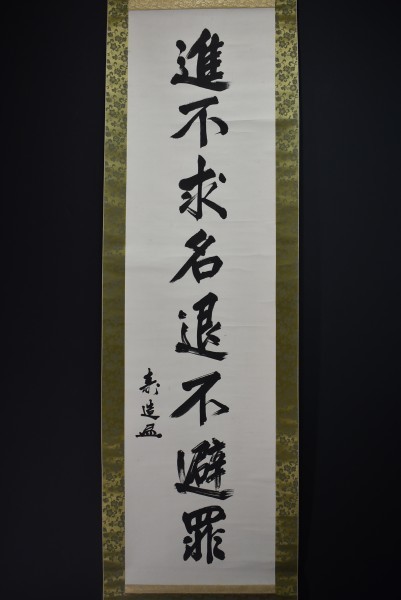 進不求名退不避罪
寿造